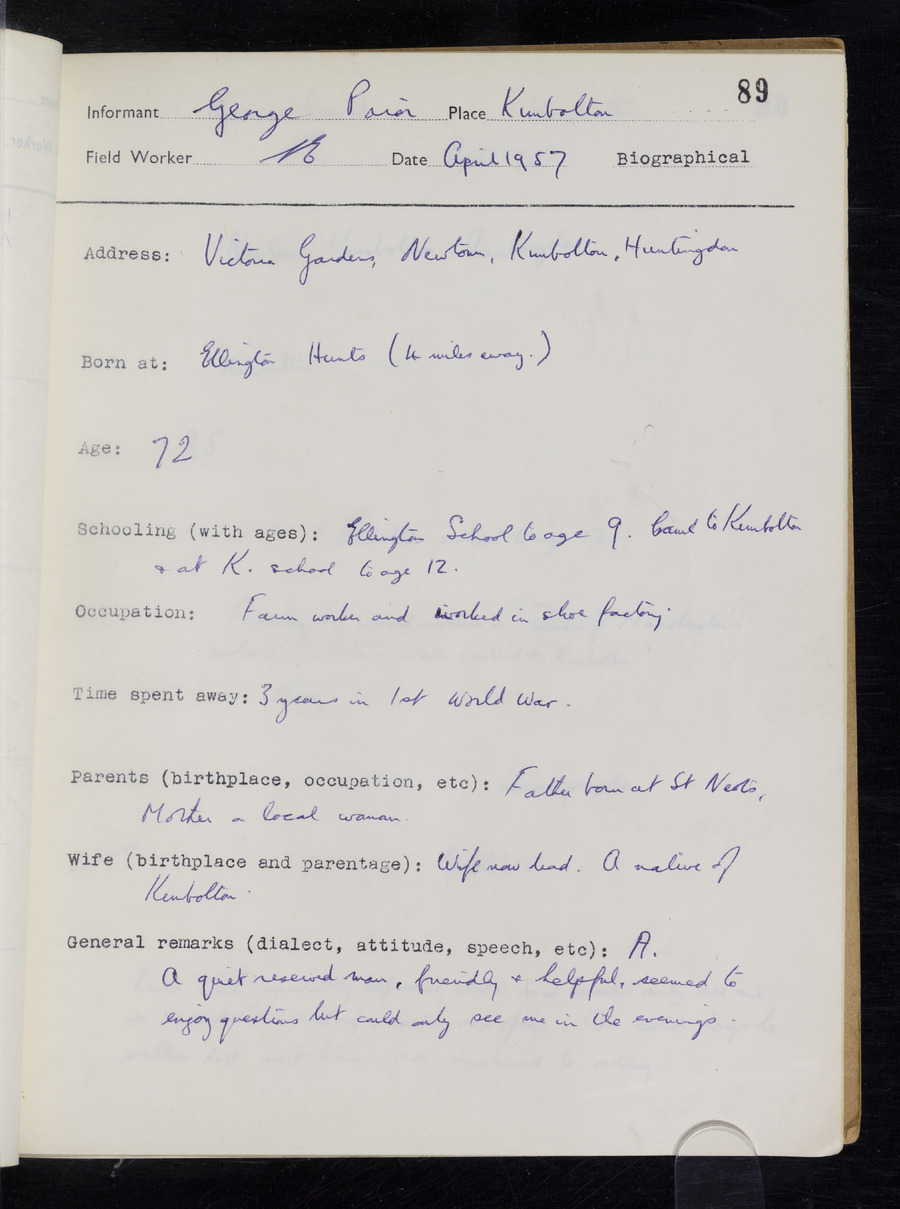 89
Informant George Prior Place Kimbolton
Field Worker Date April 1957 Biographical
Address: Victoria Gardens, Newtown, Kimbolton, Huntingdon
Born at: Ellington Hunts (4 miles away.)
Age: 72
Schooling (with ages): Ellington School to age 9. Came to Kimbolton
& at K. school to age 12.
Occupation: Farm worker and worked in shoe factory.
Time spent away: 3 years in 1st World War.
Parents (birthplace, occupation, etc): Father born at St Neots,
Mother a local woman.
Wife (birthplace and parentage): Wife now dead. A native of
Kimbolton.
General remarks (dialect, attitude, speech, etc): A.
A quiet reserved man, friendly & helpful, seemed to
enjoy questions but could only see me in the evenings.